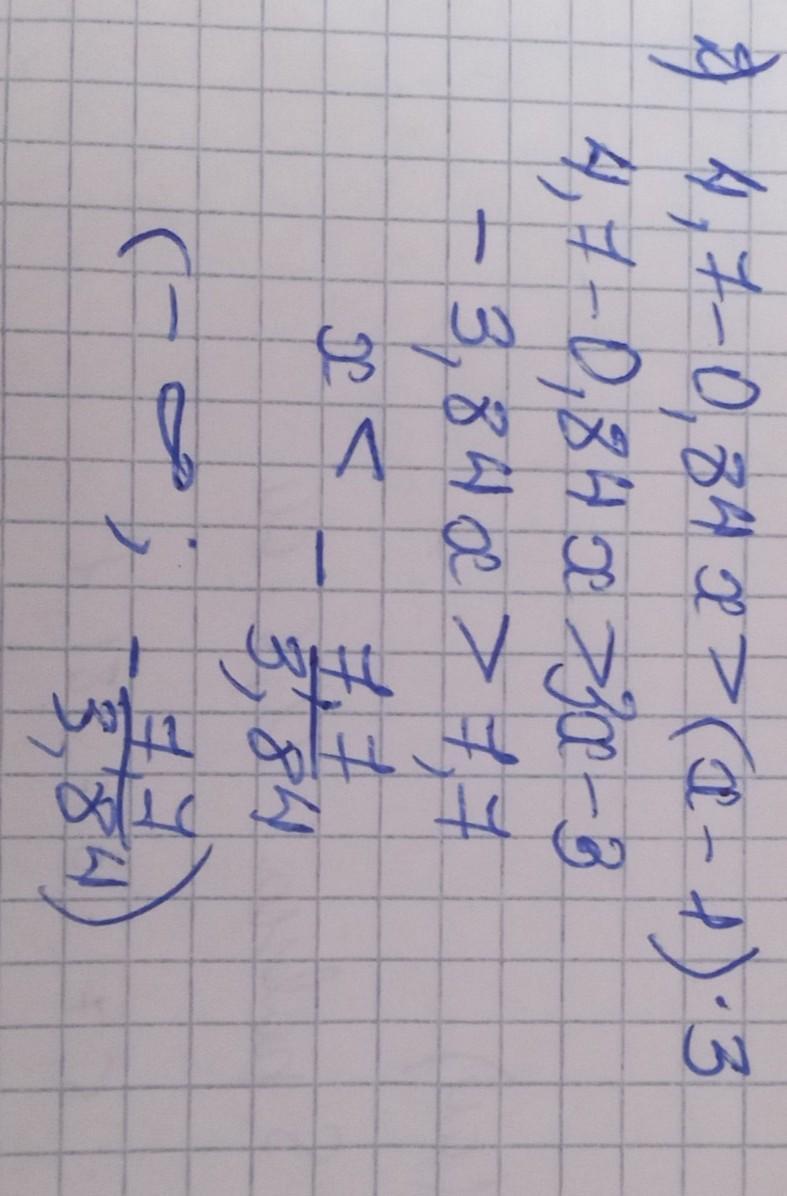 2) 4,7-0,84x>(x-1)·3
4,7-0,84x>3x-3
-3,84x>7,7
x<-7,7/3,84
(-∞;-7,7/3,84)